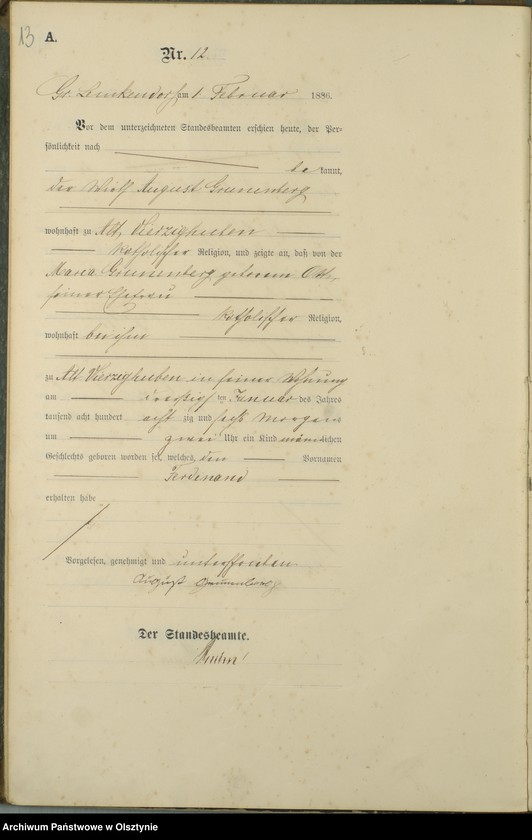 13 A.
Nr. 12.
Gr. Lemkendorf am 1 Februar 1886.
Vor dem unterzeichneten Standesbeamten erschien heute, der Per-
sönlichkeit nach
be kannt,
der Wirth August Grunenberg
wohnhaft zu Alt Vierzighuben
katholischer Religion, und zeigte an, daß von der
Maria Grunenberg geborene
seiner Ehefrau
katholischer Religion,
wohnhaft bei ihm
zu Alt Vierzighuben in seiner Wohnung
am dreißigsten Januar des Jahres
tausend acht hundert achtzig und sechs Morgens
um zwei Uhr ein Kind männlichen
Geschlechts geboren worden sei, welches den Vornamen
Ferdinand
erhalten habe
Vorgelesen, genehmigt und unterschrieben
August Grunenberg
Der Standesbeamte.
Archiwum Państwowe w Olsztynie